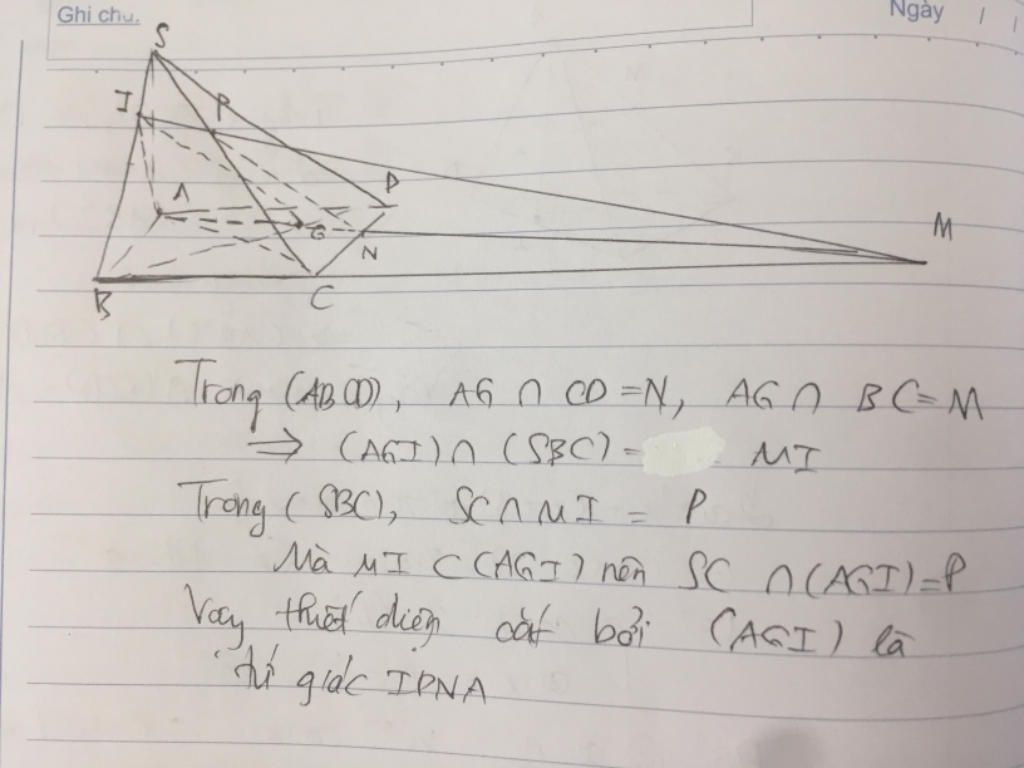 Ghi chú.
Ngày / /
S
I
P
A
D
G
N
M
B
C
Trong (ABCD), AG ∩ CD = N, AG ∩ BC = M
⇒ (AGI) ∩ (SBC) = MI
Trong (SBC), SC ∩ MI = P
Mà MI ⊂ (AGI) nên SC ∩ (AGI) = P
Vay thiết diện cắt bởi (AGI) là
tứ giác IPNA